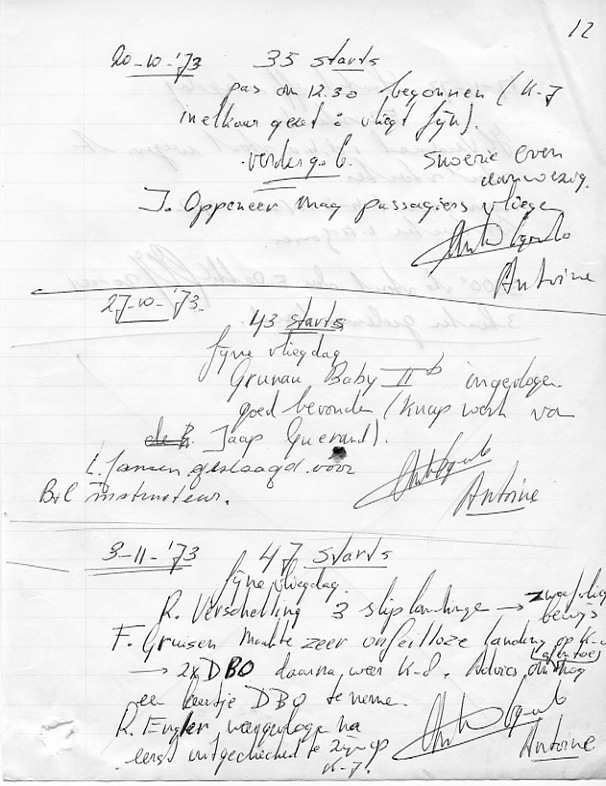 12
20-10-'73 35 starts
pas om 12.30 begonnen (K-7
inelkaar gezet : vliegt fijn).
verder g.b. Snoerie even
aanwezig.
J. Oppeneer mag passagiers vliegen
Antoine
27-10-'73. 43 starts
fijne vliegdag
Grunau Baby II b ingevlogen
goed bevonden (knap werk van
Jaap Guerand).
L. Jansen geslaagd voor
B+C instructeur.
Antoine
3-11-'73 47 starts
fijne vliegdag.
R. Verschelling 3 sliplandingen → zweefvlieg
bewijs
F. Gruisen maakte zeer onfeilloze landing op K-8
(af en toe)
→ 2x DBO daarna weer K-8. Advies om nog
een keertje DBO te nemen.
R. Engler
eerst uitgechecked te zijn op
K-7.
Antoine